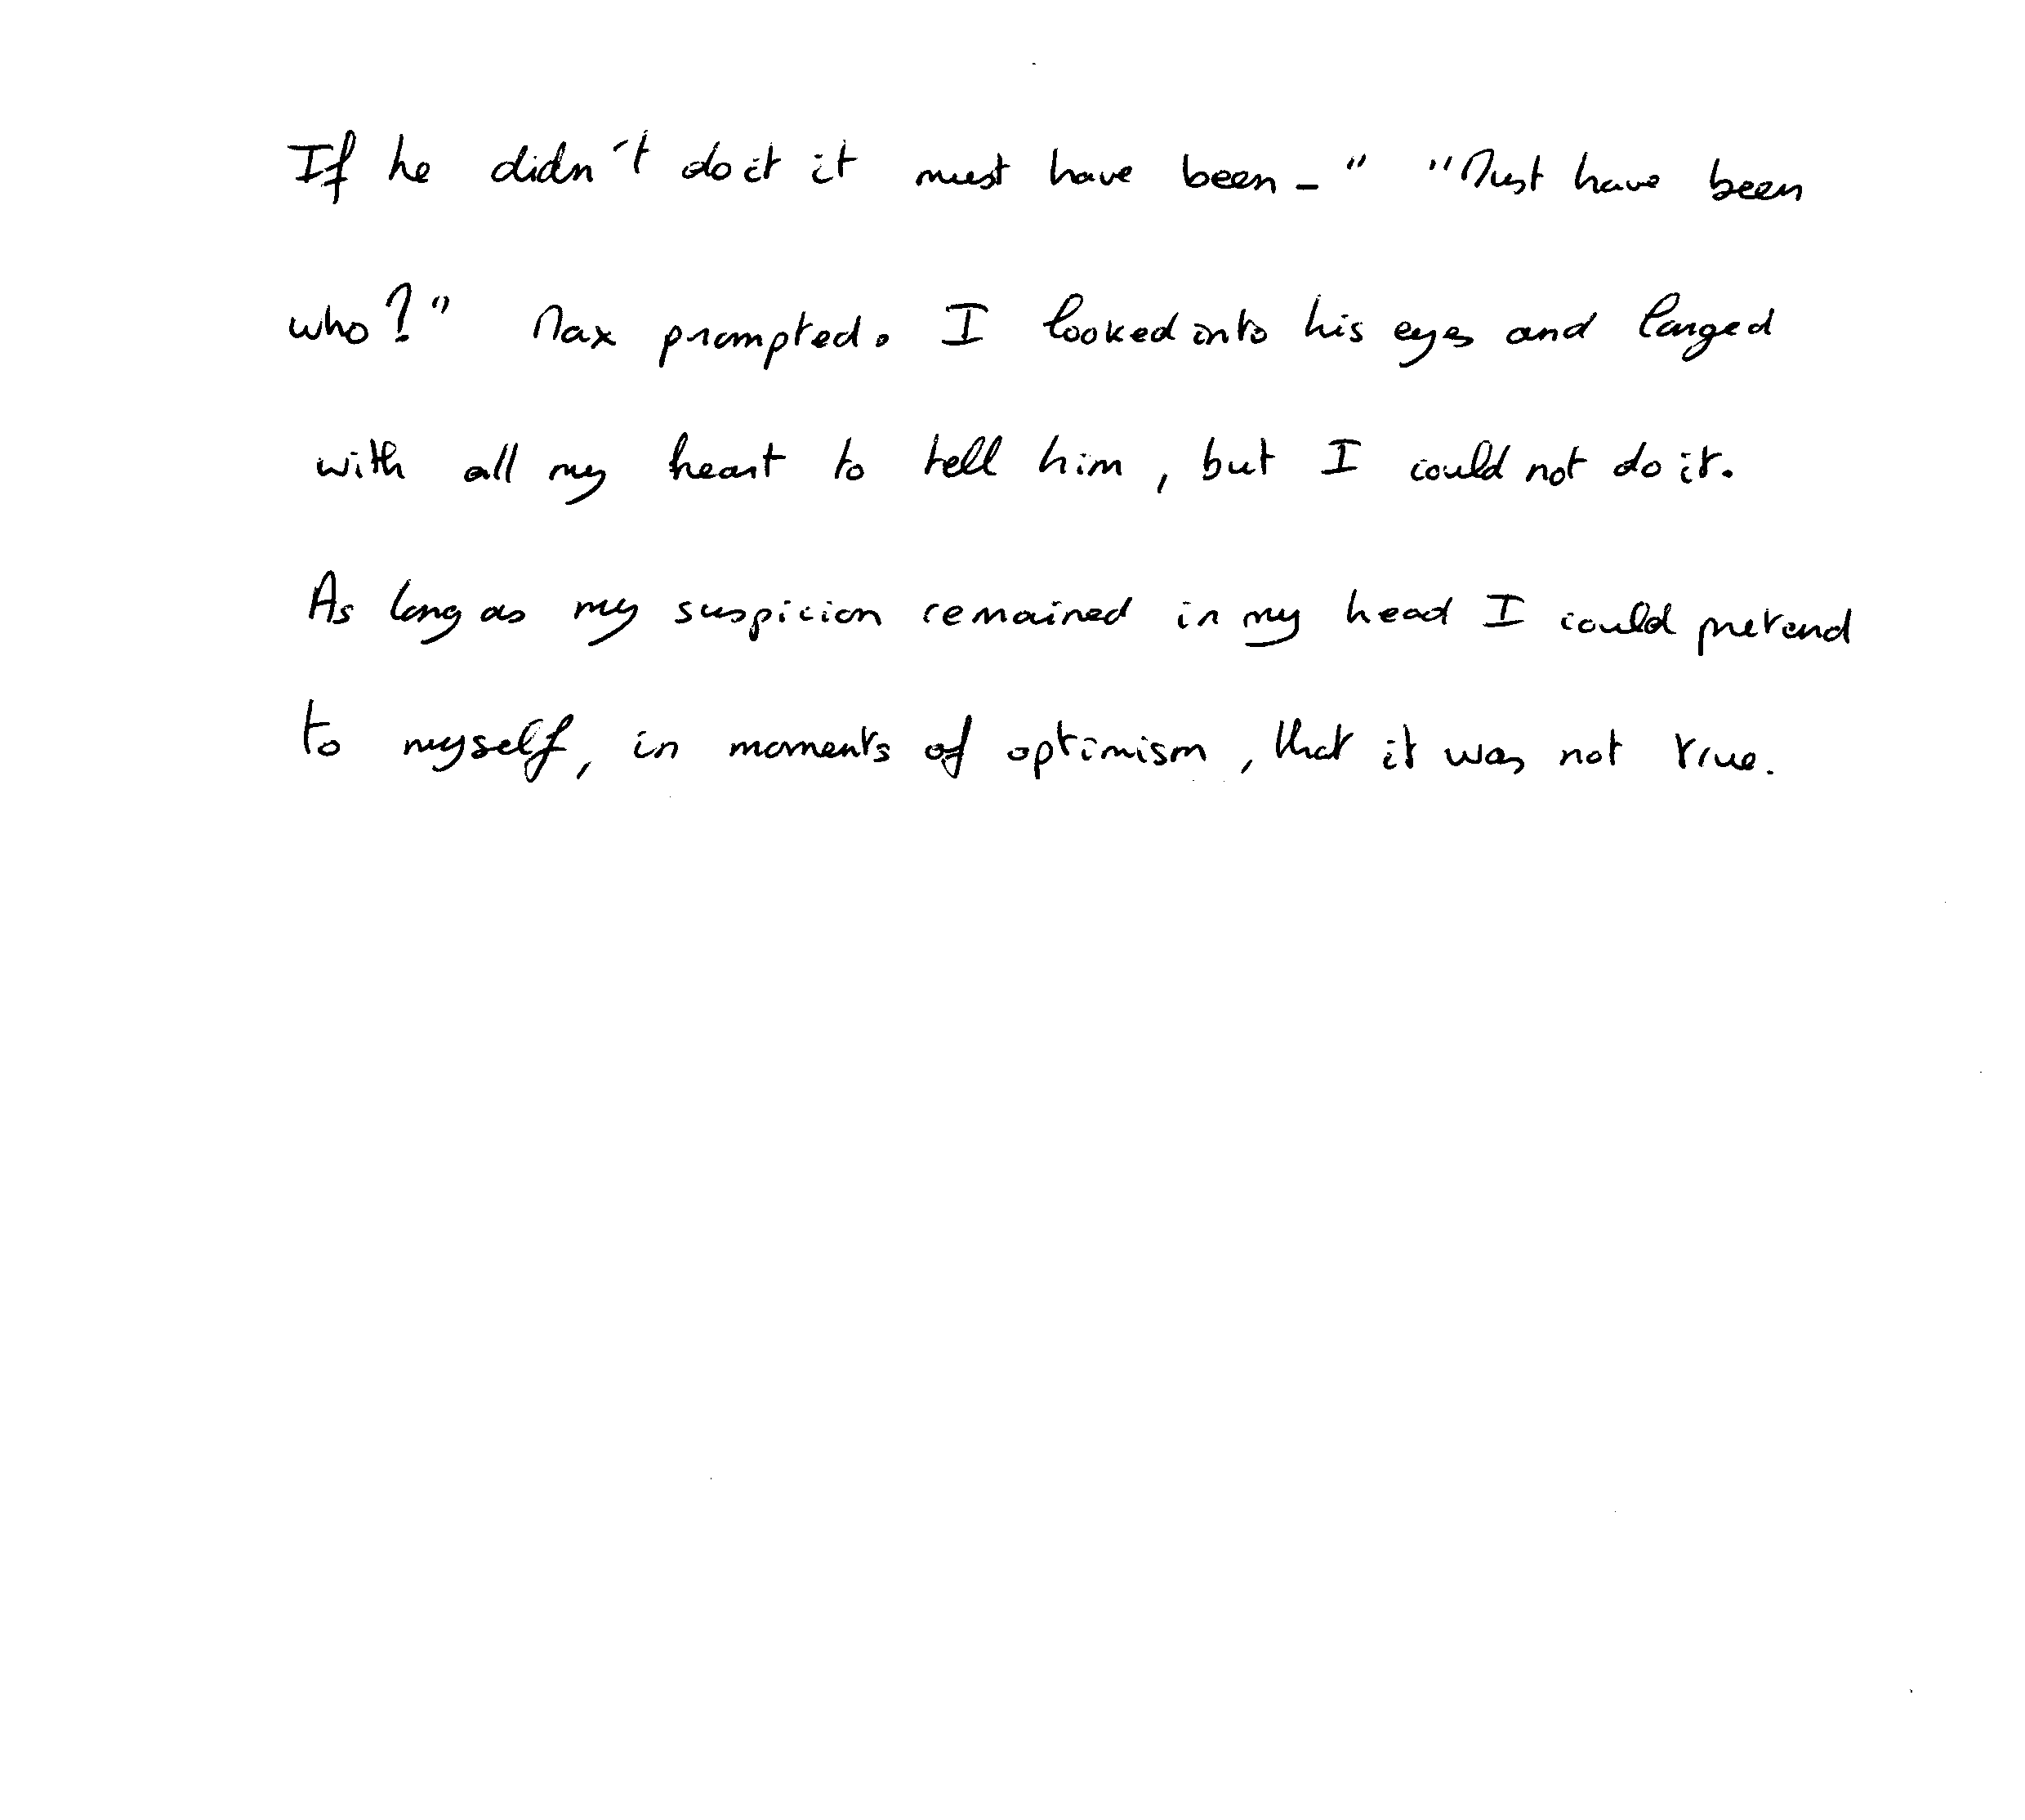 If he didn't do it it must have been - " "Must have been
who?" Max prompted. I looked into his eyes and longed
with all my heart to tell him, but I could not do it.
As long as my suspicion remained in my head I could pretend
to myself, in moments of optimism, that it was not true.